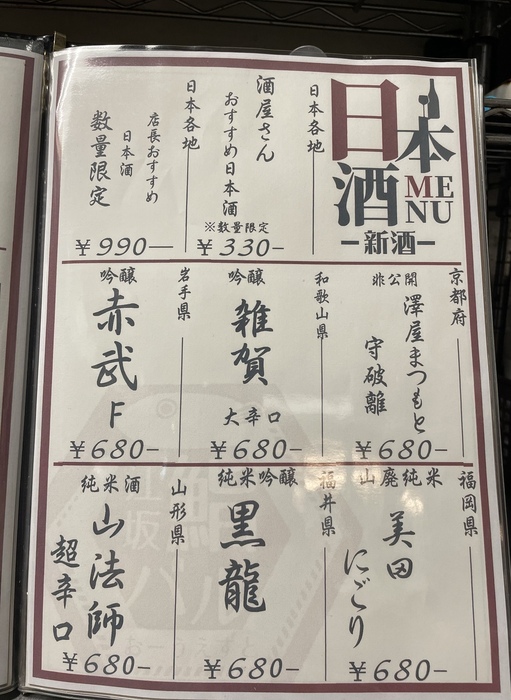 日本酒
MENU
-新酒-
日本各地
酒屋さん
おすすめ日本酒
※数量限定
¥330-
日本各地
店長おすすめ
日本酒
数量限定
¥990-
京都府
非公開
澤屋まつもと
守破離
¥680-
和歌山県
吟醸
雑賀
大辛口
¥680-
岩手県
吟醸
赤武
F
¥680-
福岡県
山廃純米
美田
にごり
¥680-
福井県
純米吟醸
黒龍
¥680-
山形県
純米酒
山法師
超辛口
¥680-